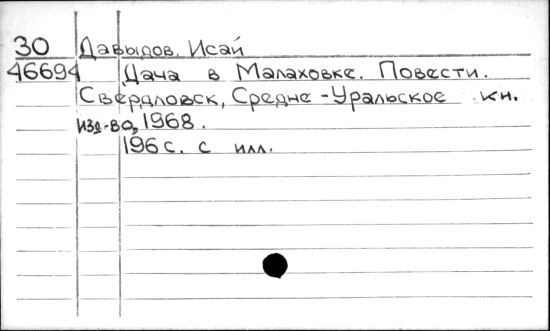 30 Давыдов, Исай
46694 Дача в Малаховке. Повести.
Свердловск, Средне-Уральское кн.
изд-во, 1968.
196 с. с илл.